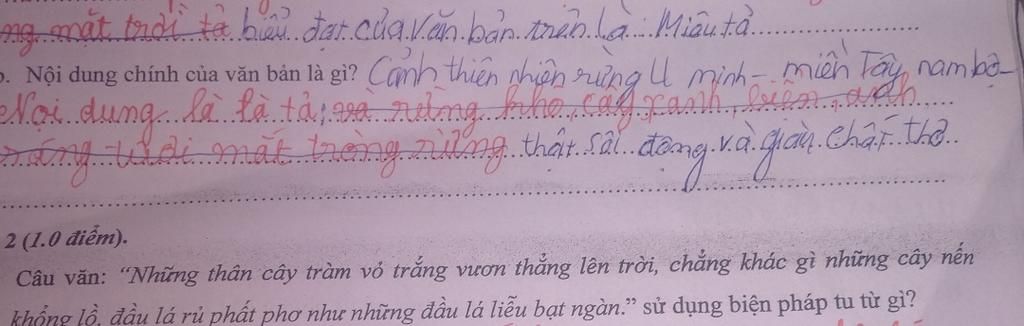 ng mặt trời tả biểu đạt của văn bản trên là: Miêu tả
b. Nội dung chính của văn bản là gì? Cảnh thiên nhiên rừng U minh - miền Tây nam bộ
Nọi dung là tả tả; và rừng khô, cây xanh, biên, anh
ráng tươi mắt tròng rừng thật sôi động và giàu chất thơ
2 (1.0 điểm).
Câu văn: “Những thân cây tràm vỏ trắng vươn thẳng lên trời, chẳng khác gì những cây nến
khổng lồ, đầu lá rủ phất phơ như những đầu lá liễu bạt ngàn.” sử dụng biện pháp tu từ gì?